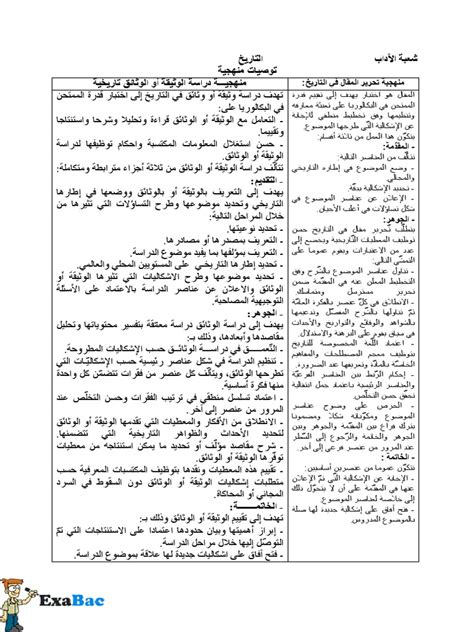 شعبة الآداب
التاريخ
توصيات منهجية
منهجية تحرير المقال في التاريخ:
المقال هو اختبار يهدف إلى تقييم قدرة
الممتحن في البكالوريا على تعبئة معارفه
وتنظيمها وفق تخطيط منطقي للإجابة
عن الإشكالية التي طرحها الموضوع.
يتكون هذا العمل من ثلاثة أقسام:
- المقدمة:
تتألف من العناصر التالية:
- وضع الموضوع في إطاره التاريخي
والمجالي.
- تحديد الإشكالية بدقة.
- الإعلان عن عناصر الموضوع في
شكل تساؤلات في أغلب الأحيان.
- الجوهر:
يتطلب تحرير مقال في التاريخ حسن
توظيف المعطيات التاريخية ويخضع إلى
عدد من الاعتبارات ويقوم عموما على
التمشي التالي:
- تناول عناصر الموضوع بالشرح وفق
تخطيط محكم يتضمن أفكارا أساسية في
تحرير مسترسل ومتماسك.
- الانطلاق في كل عنصر بالفكرة العامة
ثم تناولها بالشرح المفصل وتدعيمها
بالشواهد والوقائع والتواريخ والأحداث
في تمش يقوم على البرهنة والاستدلال.
- اعتماد اللغة المخصوصة للتاريخ
بتوظيف معجم المصطلحات والمفاهيم
الخاصة بالمادة وتعريفها عند الضرورة.
- إحكام الربط بين العناصر الفرعية
والعناصر الرئيسية باعتماد جمل انتقالية
تحقق حسن التخلص.
- الحرص على وضوح عناصر
الموضوع ومكوناته شكلا ومضمونا
بترك فراغ بين المقدمة والجوهر وبين
الجوهر والخاتمة وبالرجوع إلى السطر
عند المرور من عنصر إلى آخر.
- الخاتمة:
تتكون عموما من عنصرين أساسيين:
- الإجابة عن الإشكالية التي تم تحديدها
في المقدمة على أن لا يتحول ذلك
إلى خلاصة لعناصر الموضوع.
- فتح آفاق لإشكالية جديدة لها علاقة
بالموضوع المدروس.
منهجية دراسة الوثيقة أو الوثائق تاريخية
تهدف دراسة وثيقة أو وثائق في التاريخ إلى اختبار قدرة الممتحن
في البكالوريا على:
- التعامل مع الوثيقة أو الوثائق قراءة وتحليلا وشرحا واستنتاجا
وتقييما.
- حسن استغلال المعلومات المكتسبة واحكام توظيفها لدراسة
الوثيقة أو الوثائق.
تتألف دراسة الوثيقة أو الوثائق من ثلاثة أجزاء مترابطة ومتكاملة:
- التقديم:
يهدف إلى التعريف بالوثيقة أو بالوثائق ووضعها في إطارها
التاريخي وتحديد موضوعها وطرح التساؤلات التي تثيرها من
خلال المراحل التالية:
- تحديد نوعيتها.
- التعريف بمصدرها أو مصادرها.
- التعريف بمؤلفها بما يفيد موضوع الدراسة.
- تحديد إطارها التاريخي على المستويين المحلي والعالمي.
- تحديد موضوعها والاشكاليات التي تثيرها الوثيقة أو
الوثائق والاعلان عن عناصر الدراسة بالاعتماد على الأسئلة
التوجيهية المصاحبة.
- الجوهر:
يهدف إلى دراسة الوثائق دراسة معمقة بتفسير محتوياتها وتحليل
مقاصدها وأبعادها، وذلك بـ:
- التعمق في دراسة الوثائق حسب الإشكاليات المطروحة.
- تنظيم الدراسة في شكل عناصر رئيسية حسب الإشكاليات التي
تطرحها الوثائق، ويتألف كل عنصر من فقرات تتضمن كل واحدة
منها فكرة أساسية.
- اعتماد تسلسل منطقي في ترتيب الفقرات وحسن التخلص عند
المرور من عنصر إلى آخر.
- الانطلاق من الأفكار والمعطيات التي تقدمها الوثيقة أو الوثائق
لتحديد الأحداث والظواهر التاريخية التي تتضمنها.
- شرح مقاصد مؤلف أو تحديد ما يمكن استنتاجه من معطيات
توفرها الوثيقة أو الوثائق.
- تقييم هذه المعطيات ونقدها بتوظيف المكتسبات المعرفية حسب
متطلبات إشكاليات الوثيقة أو الوثائق دون السقوط في السرد
المجاني أو المحاكاة.
- الخاتمة:
تهدف إلى تقييم الوثيقة أو الوثائق وذلك بـ:
- إبراز أهميتها وبيان حدودها اعتمادا على الاستنتاجات التي تم
التوصل إليها خلال مراحل الدراسة.
- فتح آفاق على اشكاليات جديدة لها علاقة بموضوع الدراسة.
ExaBac